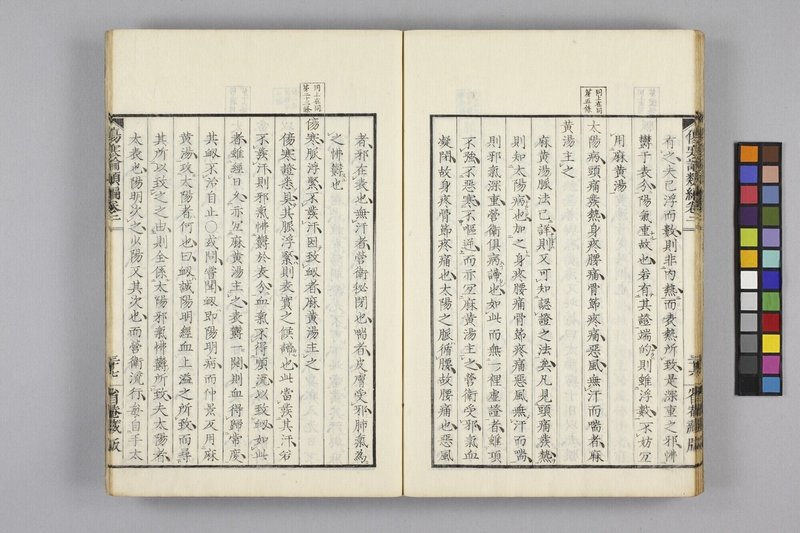 有之夫已浮而數則非内熱而表熱所致是深重之邪怫
鬱于表分陽氣重故也若有其證端的則雖浮數不妨宜
用麻黄湯
同上在同
第五條
太陽病頭痛發熱身疼腰痛骨節疼痛惡風無汗而喘者麻
黄湯主之
麻黄湯脈法已詳則又可知認證之法矣凡見頭痛發熱
則知太陽病也加之身疼腰痛骨節疼痛惡風無汗而喘
則邪氣深重營衛俱病諦也如此而無一裡虚證者雖項
不強不惡寒不嘔逆而亦宜麻黄湯主之營衛受邪氣血
凝閉故身疼骨節疼痛也太陽之脈循腰故腰痛也惡風
者邪在表也無汗者營衛秘閉也喘者皮膚受邪肺氣為
之怫鬱也
同上在同
傷寒脈浮緊不發汗因致衂者麻黄湯主之
傷寒證悉具其脈浮緊則表實之候諦也此當發其汗若
不發汗則邪氣怫鬱於表分血氣不得順流以致衂如此
者雖經日久亦宜麻黄湯主之表鬱一開則血得歸常度
其衂不治自止〇或問嘗聞衂即陽明病而仲景反用麻
黄湯攻太陽者何也曰衂誠陽明經血上溢之所致而尋
其所以致之之由則全係太陽邪氣怫鬱所致夫太陽者
太表也陽明次之少陽又其次也而營衛流行每自手太
傷寒論類編卷二
省菴藏版